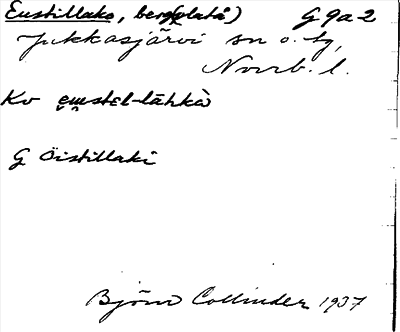 Eustillako, berg(platå) G 9a2
Jukkasjärvi sn o. tg,
Norrb. l.
Kv eustel-lāhkà
G Öistillaki
Björn Collinder 1937